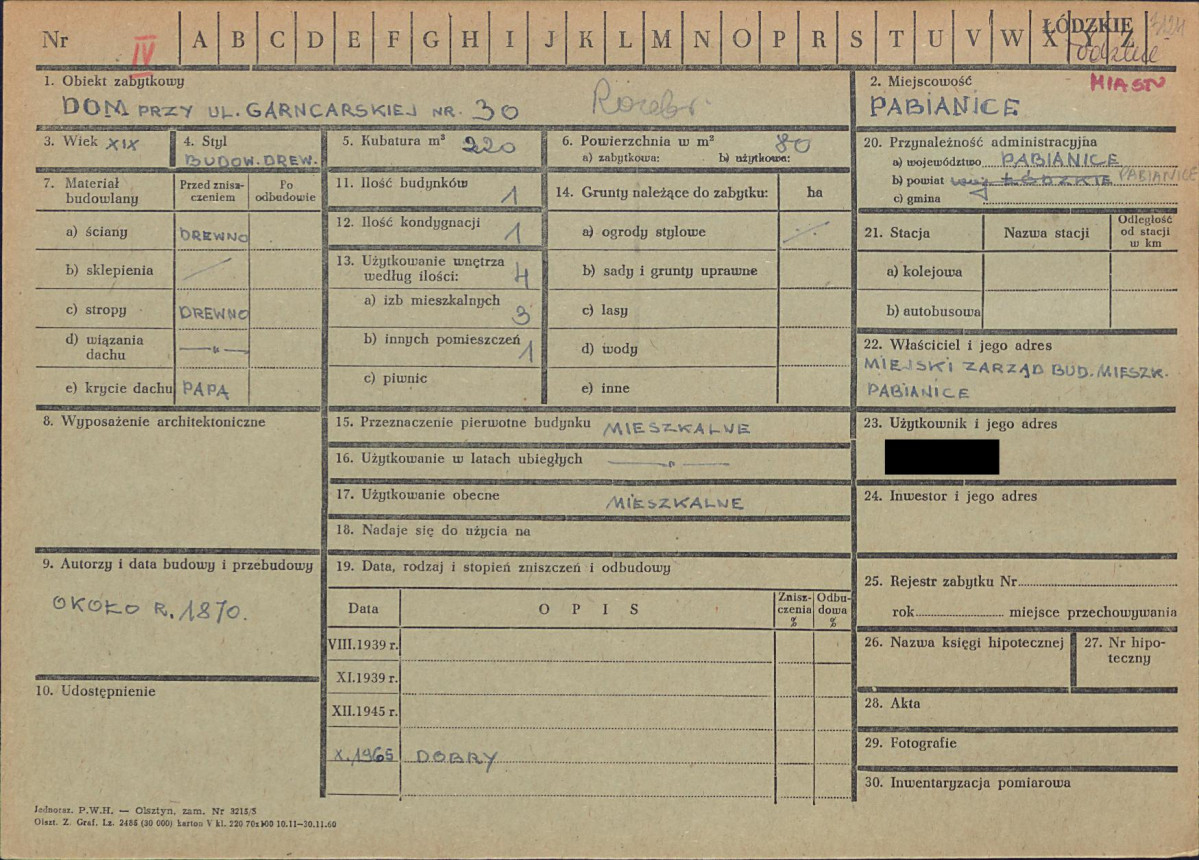 Nr IV A B C D E F G H I J K L M N O P R S T U V W X Y Z
ŁÓDZKIE
1. Obiekt zabytkowy
DOM PRZY UL. GARNCARSKIEJ NR. 30
2. Miejscowość
MIASTO
PABIANICE
3. Wiek XIX
4. Styl
BUDOW. DREW.
5. Kubatura m³ 220
6. Powierzchnia w m² 80
a) zabytkowa: b) użytkowa:
7. Materiał budowlany
Przed zniszczeniem
Po odbudowie
a) ściany DREWNO
b) sklepienia
c) stropy DREWNO
d) wiązania dachu —"—
e) krycie dachu PAPA
8. Wyposażenie architektoniczne
9. Autorzy i data budowy i przebudowy
OKOŁO R. 1870.
10. Udostępnienie
11. Ilość budynków 1
12. Ilość kondygnacji 1
13. Użytkowanie wnętrza
według ilości: 4
a) izb mieszkalnych 3
b) innych pomieszczeń 1
c) piwnic
14. Grunty należące do zabytku: ha
a) ogrody stylowe
b) sady i grunty uprawne
c) lasy
d) wody
e) inne
15. Przeznaczenie pierwotne budynku MIESZKALNE
16. Użytkowanie w latach ubiegłych —"—
17. Użytkowanie obecne MIESZKALNE
18. Nadaje się do użycia na
19. Data, rodzaj i stopień zniszczeń i odbudowy
Data O P I S Zniszczenia % Odbudowa %
VIII.1939 r.
XI.1939 r.
XII.1945 r.
X.1965 DOBRY
20. Przynależność administracyjna
a) województwo PABIANICE
b) powiat ŁÓDZKIE PABIANICE
c) gmina
21. Stacja Nazwa stacji Odległość od stacji w km
a) kolejowa
b) autobusowa
22. Właściciel i jego adres
MIEJSKI ZARZĄD BUD. MIESZK.
PABIANICE
23. Użytkownik i jego adres
24. Inwestor i jego adres
25. Rejestr zabytku Nr
rok miejsce przechowywania
26. Nazwa księgi hipotecznej
27. Nr hipoteczny
28. Akta
29. Fotografie
30. Inwentaryzacja pomiarowa
Jednoraz. P.W.H. — Olsztyn, zam. Nr 3215/S
Olszt. Z. Graf. Lz. 2486 (30 000) karton V kl. 220 70x100 10.11—30.11.60